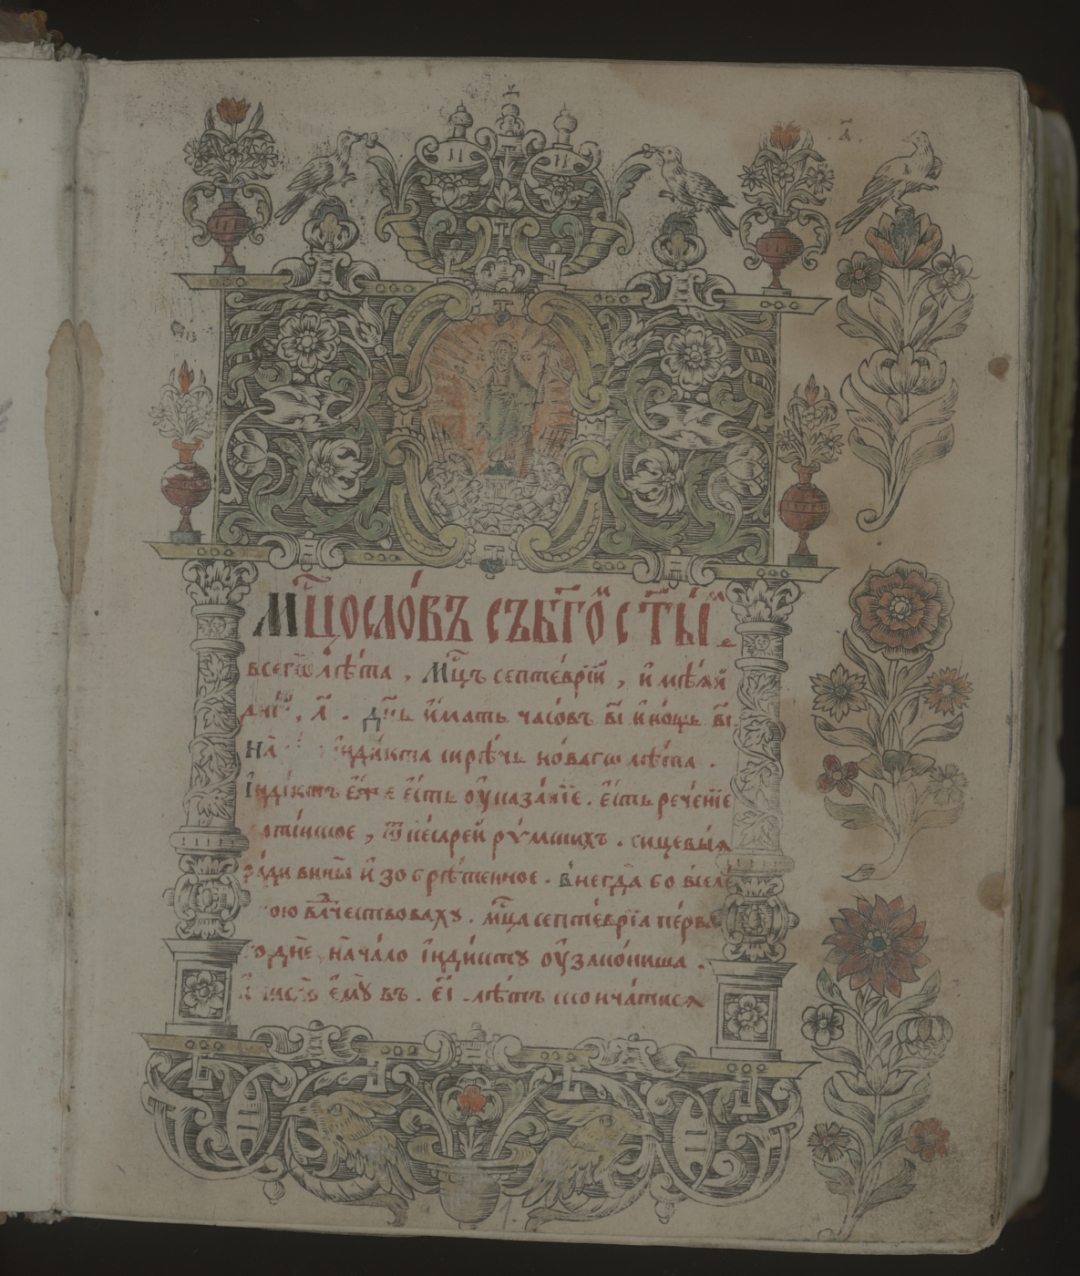 Мц҃ослѡ́въ съ бг҃ѡ́м с҃ты́м
всегѡ̀ лѣ́та , Мц҃ъ септе́врїй , и҆мѣ́ѧй
дні́й , л҃ . дн҃ь и҆́мать часѡ́въ в҃і и҆ но́щь в҃і
На̀ і҆нді́кта си́рѣчь но́вагѡ лѣ́та .
І҆нді́ктъ є҆́же є҆́сть ѹ҆каза́нїе . є҆́сть рече́нїе
лати́нское , ѿ ке́сарей ри́мскихъ . сицевы́ѧ
ра́ди вины̀ и҆з̾ѡбрѣ́тенное . Внегда̀ бо все́ю
влⷣчествоваху . мц҃а септе́врїа пе́рва
днѐ , нача́ло і҆нді́кту ѹ҆зако́ниша .
є҆мꙋ̀ въ . є҃і . лѣ́тъ сконча́тисѧ